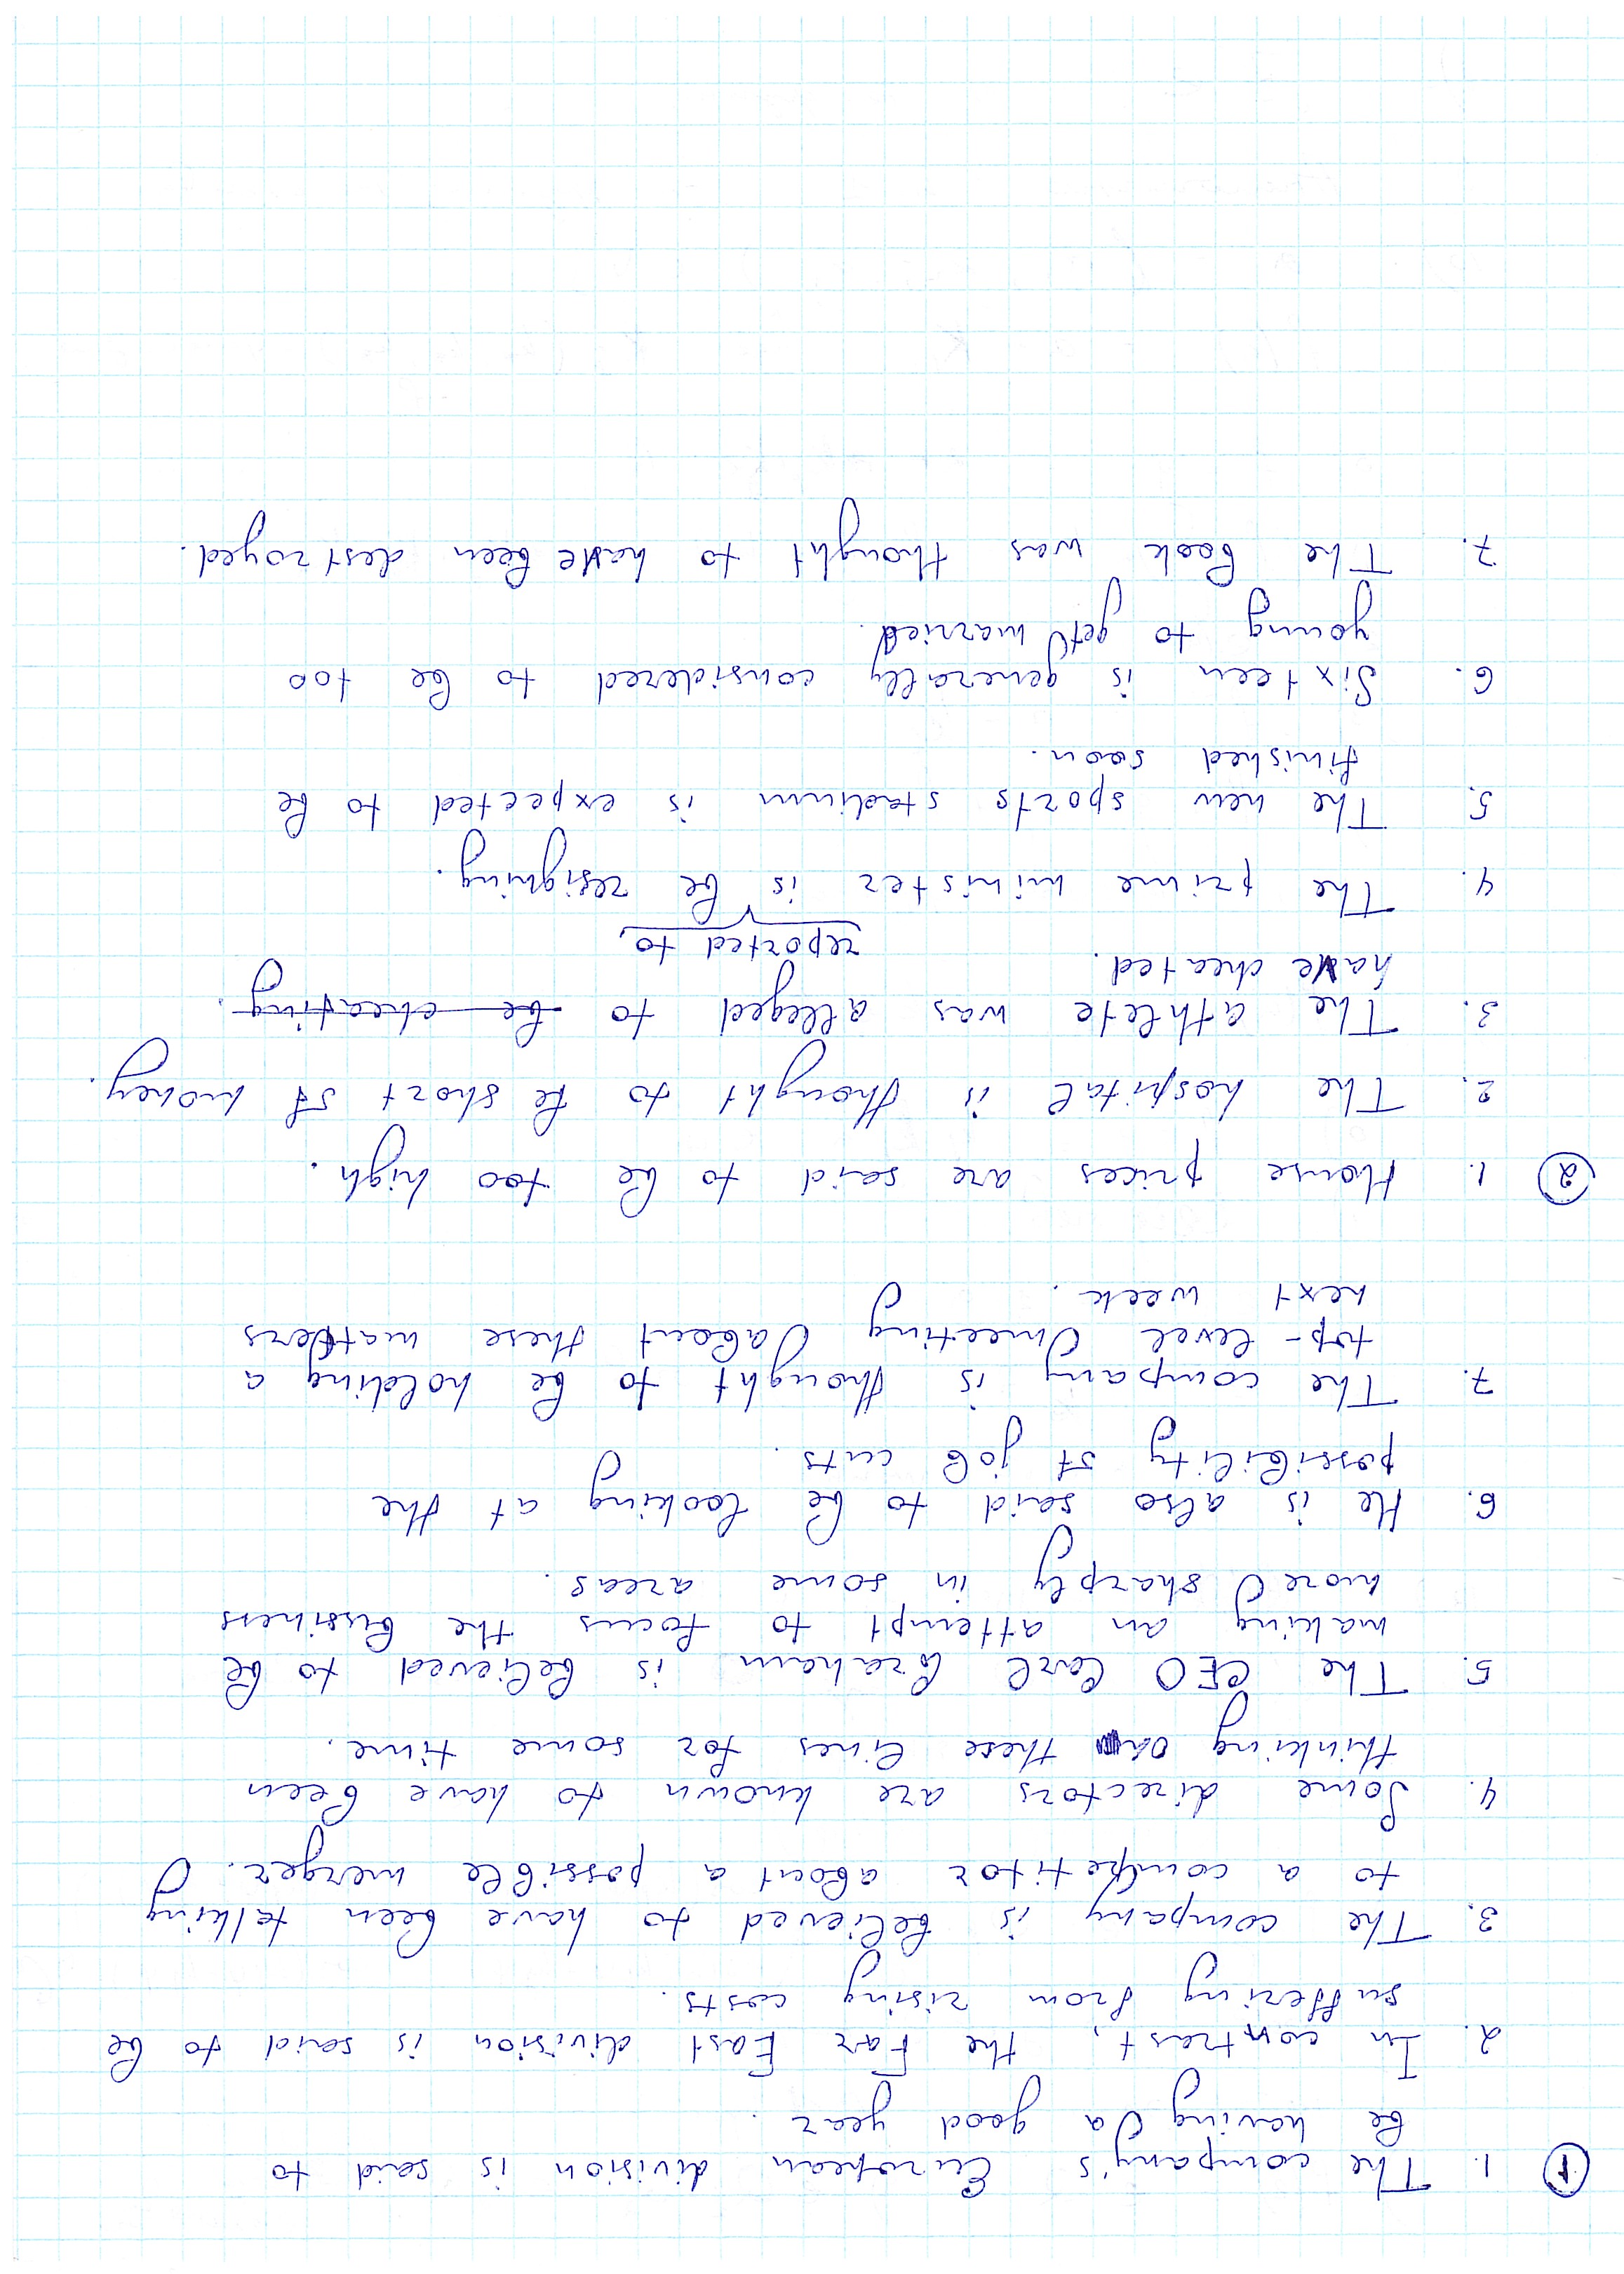 1 1. The company's European division is said to
be having a good year.
2. In contrast, the Far East division is said to be
suffering from rising costs.
3. The company is believed to have been talking
to a competitor about a possible merger.
4. Some directors are known to have been
thinking on these lines for some time.
5. The CEO Carl Graham is believed to be
making an attempt to focus the business
more sharply in some areas.
6. He is also said to be looking at the
possibility of job cuts.
7. The company is thought to be holding a
top-level meeting about these matters
next week.
2 1. House prices are said to be too high.
2. The hospital is thought to be short of money.
3. The athlete was alleged to be cheating.
have cheated.
reported to
4. The prime minister is be resigning.
5. The new sports stadium is expected to be
finished soon.
6. Sixteen is generally considered to be too
young to get married.
7. The book was thought to have been destroyed.